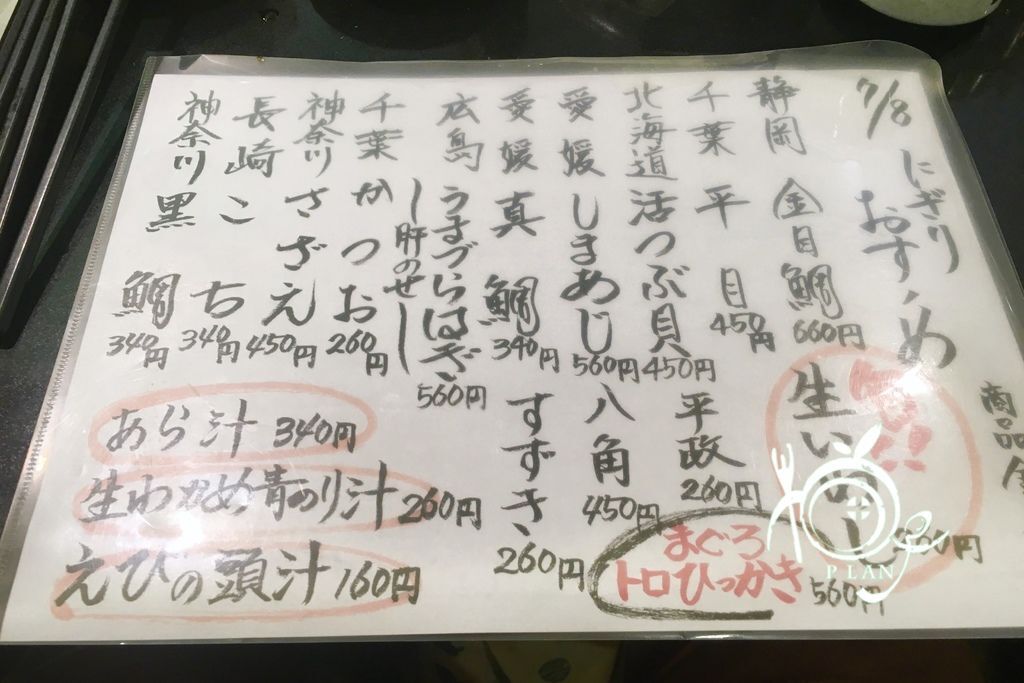 7/8
にぎり
おすゝめ
静岡 金目鯛 660円
千葉 平目 450円
北海道 活つぶ貝 450円
愛媛 しまあじ 560円
愛媛 真鯛 340円
広島 うまづらはぎ
〜肝のせ〜 560円
千葉 かつお 260円
神奈川 さざえ 450円
長崎 こち 340円
神奈川 黒鯛 340円
平政 260円
八角 450円
すずき 260円
まぐろ
トロひっかき 560円
あら汁 340円
生わかめ青のり汁 260円
えびの頭汁 160円
商品
PLAN